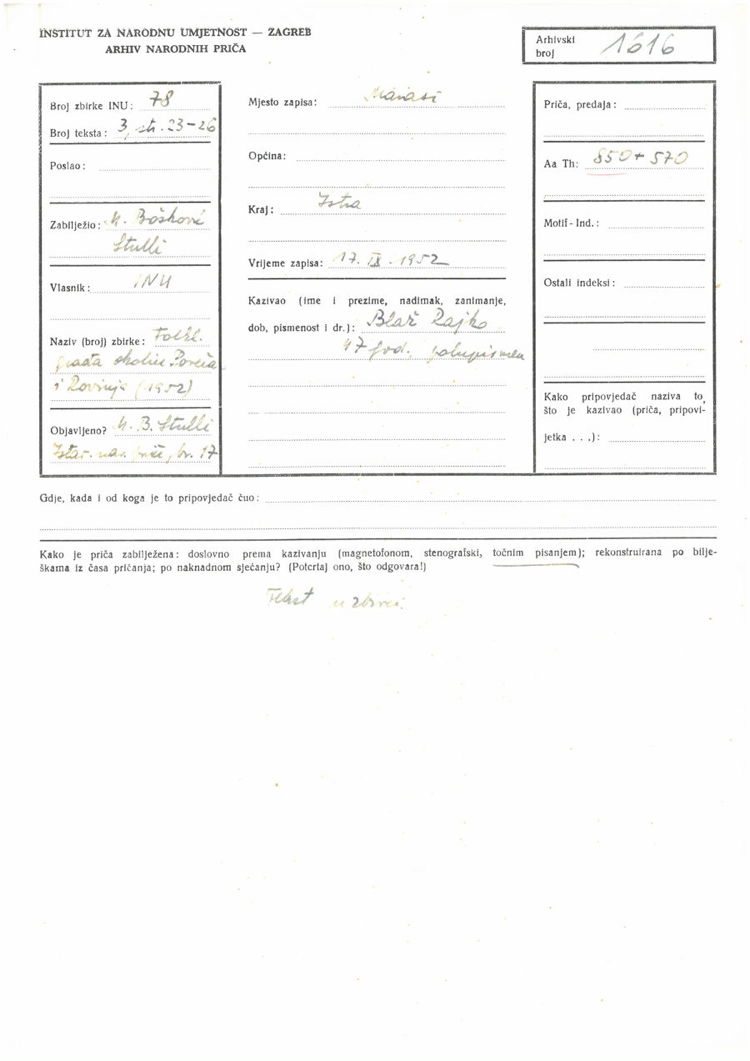 INSTITUT ZA NARODNU UMJETNOST — ZAGREB
ARHIV NARODNIH PRIČA
Arhivski
broj 1616
Broj zbirke INU: 78
Broj teksta: 3, str. 23-26
Poslao:
Zabilježio: M. Bošković
Stulli
Vlasnik: INU
Naziv (broj) zbirke: Folkl.
građa okolice Poreča
i Rovinja (1952)
Objavljeno? M. B. Stulli
Istar. nar. priče, br. 17
Mjesto zapisa:
Općina:
Kraj: Istra
Vrijeme zapisa: 17. IX. 1952
Kazivao (ime i prezime, nadimak, zanimanje,
dob, pismenost i dr.): Blaž Rajko
47 god., polupismen
Priča, predaja:
Aa Th: 850 + 570
Motif - Ind.:
Ostali indeksi:
Kako pripovjedač naziva to,
što je kazivao (priča, pripovi-
jetka . . .):
Gdje, kada i od koga je to pripovjedač čuo:
Kako je priča zabilježena: doslovno prema kazivanju (magnetofonom, stenografski, točnim pisanjem); rekonstruirana po bilje-
škama iz časa pričanja; po naknadnom sjećanju? (Potcrtaj ono, što odgovara!)
Tekst u zbirci.